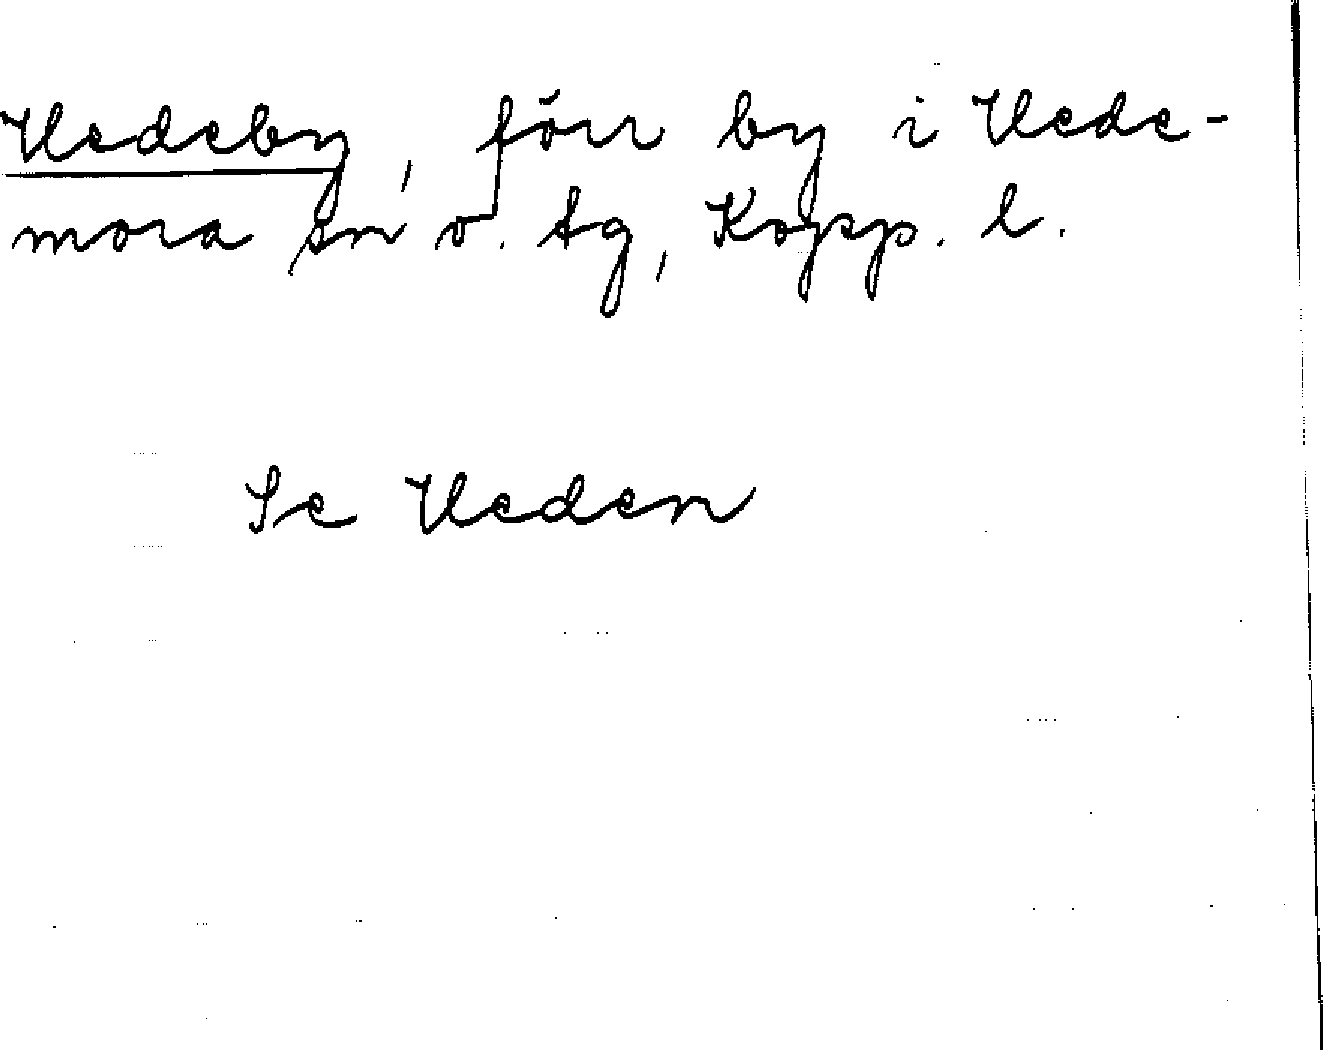 Vedeby, förr by i Vede-
mora sn o. tg, Kopp. l.
Se Veden